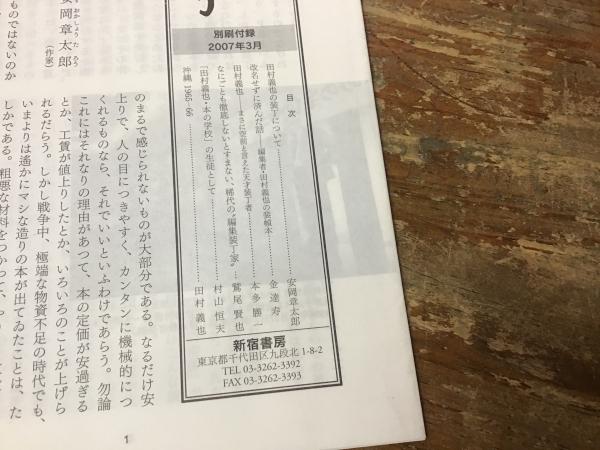 別刷付録
2007年3月
目次
田村義也の装丁について……安岡章太郎
改名せずに済んだ話——編集者・田村義也の装幀本……金達寿
田村義也——まさに空前と言えた天才装丁者……本多勝一
なにごとも徹底しないとすまない、稀代の“編集装丁家”…鷲尾賢也
「田村義也・本の学校」の生徒として……村山恒夫
沖縄 1965–66……田村義也
新宿書房
東京都千代田区九段北1-8-2
TEL 03-3262-3392
FAX 03-3262-3393
安岡章太郎
やすおかしょうたろう
（作家）
ものではないのか
のまるで感じられないものが大部分である。なるだけ安
上りで、人の目につきやすく、カンタンに機械的につ
くれるものなら、それでいいといふわけであらう。勿論
これにはそれなりの理由があつて、本の定価が安過ぎる
とか、工賃が値上りしたとか、いろいろのことが上げら
れるだらう。しかし戦争中、極端な物資不足の時代でも、
いまよりは遙かにマシな造りの本が出てゐたことは、た
しかである。粗悪な材料をつかつて、
1